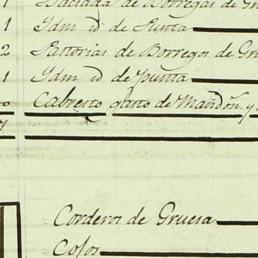 1 Baciada de Borregas de Gr
1 Idm id de Punta
2 Partorias de Borregos de Gru
1 Idm id de punta
Cabresto de Mandon y
7
Corderos de Gruesa
Cojos